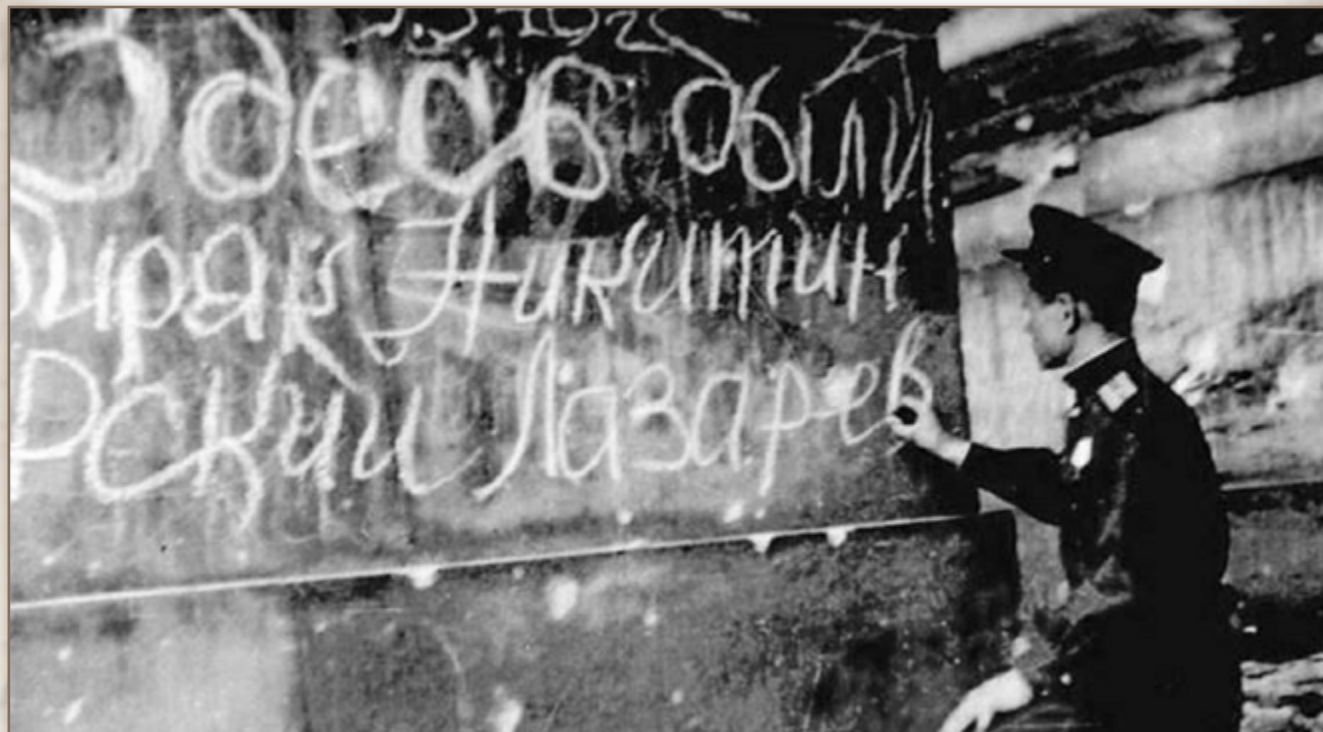 Здесь были
Сибиряк Никитин
Рский Лазарев